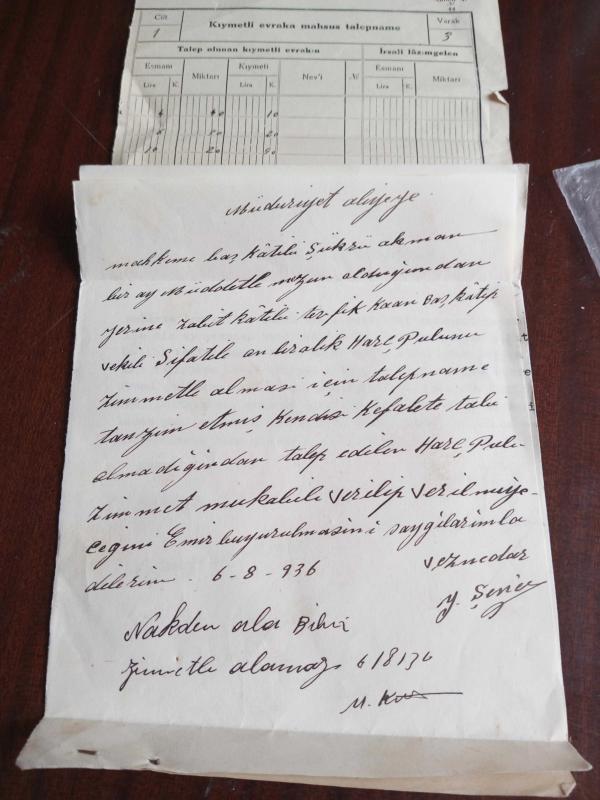 Cilt
1
Kıymetli evraka mahsus talepname
Varak
3
Talep olunan kıymetli evrakın
İrsali lâzımgelen
Esmanı
Miktarı
Kıymeti
Nev'i
№
Esmanı
Miktarı
Lira K.
Lira K.
Lira K.
10 20 50
Müdüriyet aliyeye
mahkeme baş kâtibi Şükrü akman
bir ay Müddetle mezun olduğundan
yerine zabit kâtibi tevfik Kaan Baş kâtip
vekili Sifatile on liralık Harç Pulunu
zimmetle almasi için talepname
tanzim etmiş Kendisi Kefalete tabi
olmadiğindan talep edilen Harç Pulu
zimmet mukabili verilip verilmiye-
ceğini Emir buyurulmasini saygılarimla
dilerim. 6-8-936
veznedar
Y. Şener
Nakden ala Bilir
zimmetle alamaz 6/8/36
M.